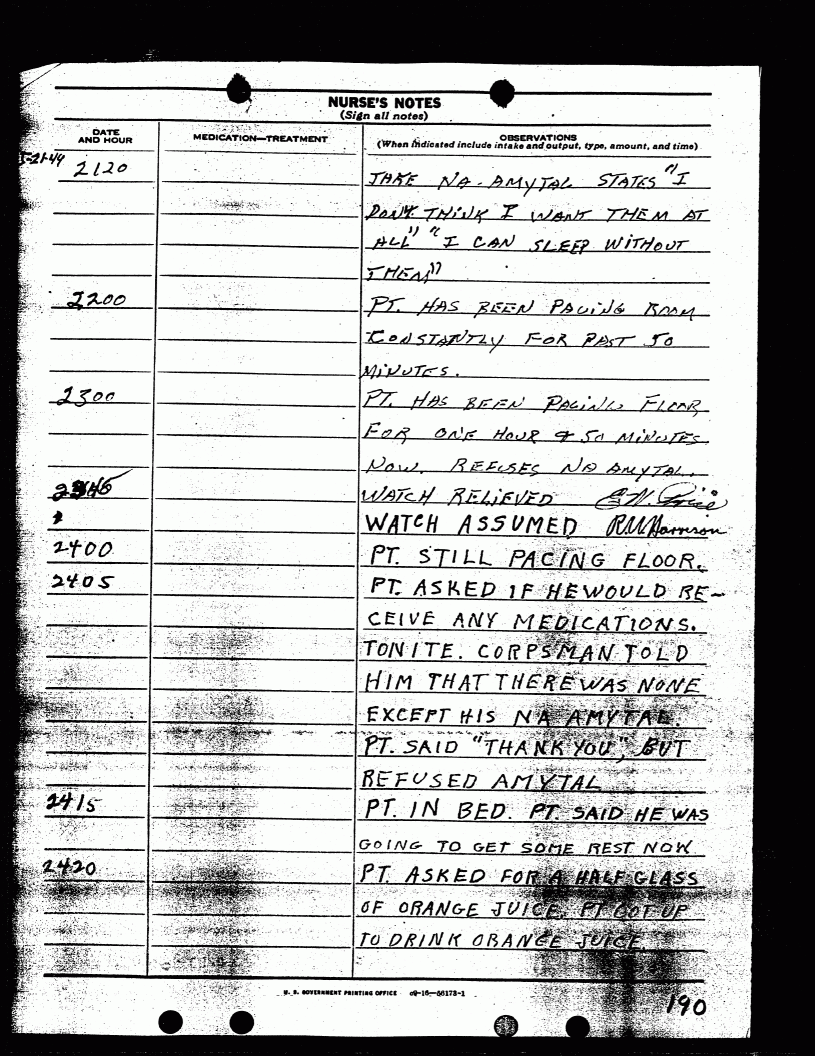 NURSE'S NOTES
(Sign all notes)
DATE AND HOUR MEDICATION—TREATMENT OBSERVATIONS
(When indicated include intake and output, type, amount, and time)
-21-49
2120 TAKE NA-AMYTAL STATES "I
DON'T THINK I WANT THEM AT
ALL" "I CAN SLEEP WITHOUT
THEM"
2200 PT. HAS BEEN PACING ROOM
CONSTANTLY FOR PAST 50
MINUTES.
2300 PT. HAS BEEN PACING FLOOR
FOR ONE HOUR & 50 MINUTES
NOW. REFUSES NA AMYTAL.
2345 WATCH RELIEVED
WATCH ASSUMED Harrison
2400 PT. STILL PACING FLOOR.
2405 PT. ASKED IF HE WOULD RE-
CEIVE ANY MEDICATIONS.
TONITE. CORPSMAN TOLD
HIM THAT THERE WAS NONE
EXCEPT HIS NA AMYTAL.
PT. SAID "THANK YOU", BUT
REFUSED AMYTAL
2415 PT. IN BED. PT. SAID HE WAS
GOING TO GET SOME REST NOW
2420 PT. ASKED FOR A HALF GLASS
OF ORANGE JUICE. PT GOT UP
TO DRINK ORANGE JUICE.
U. S. GOVERNMENT PRINTING OFFICE 16—56173-1
190